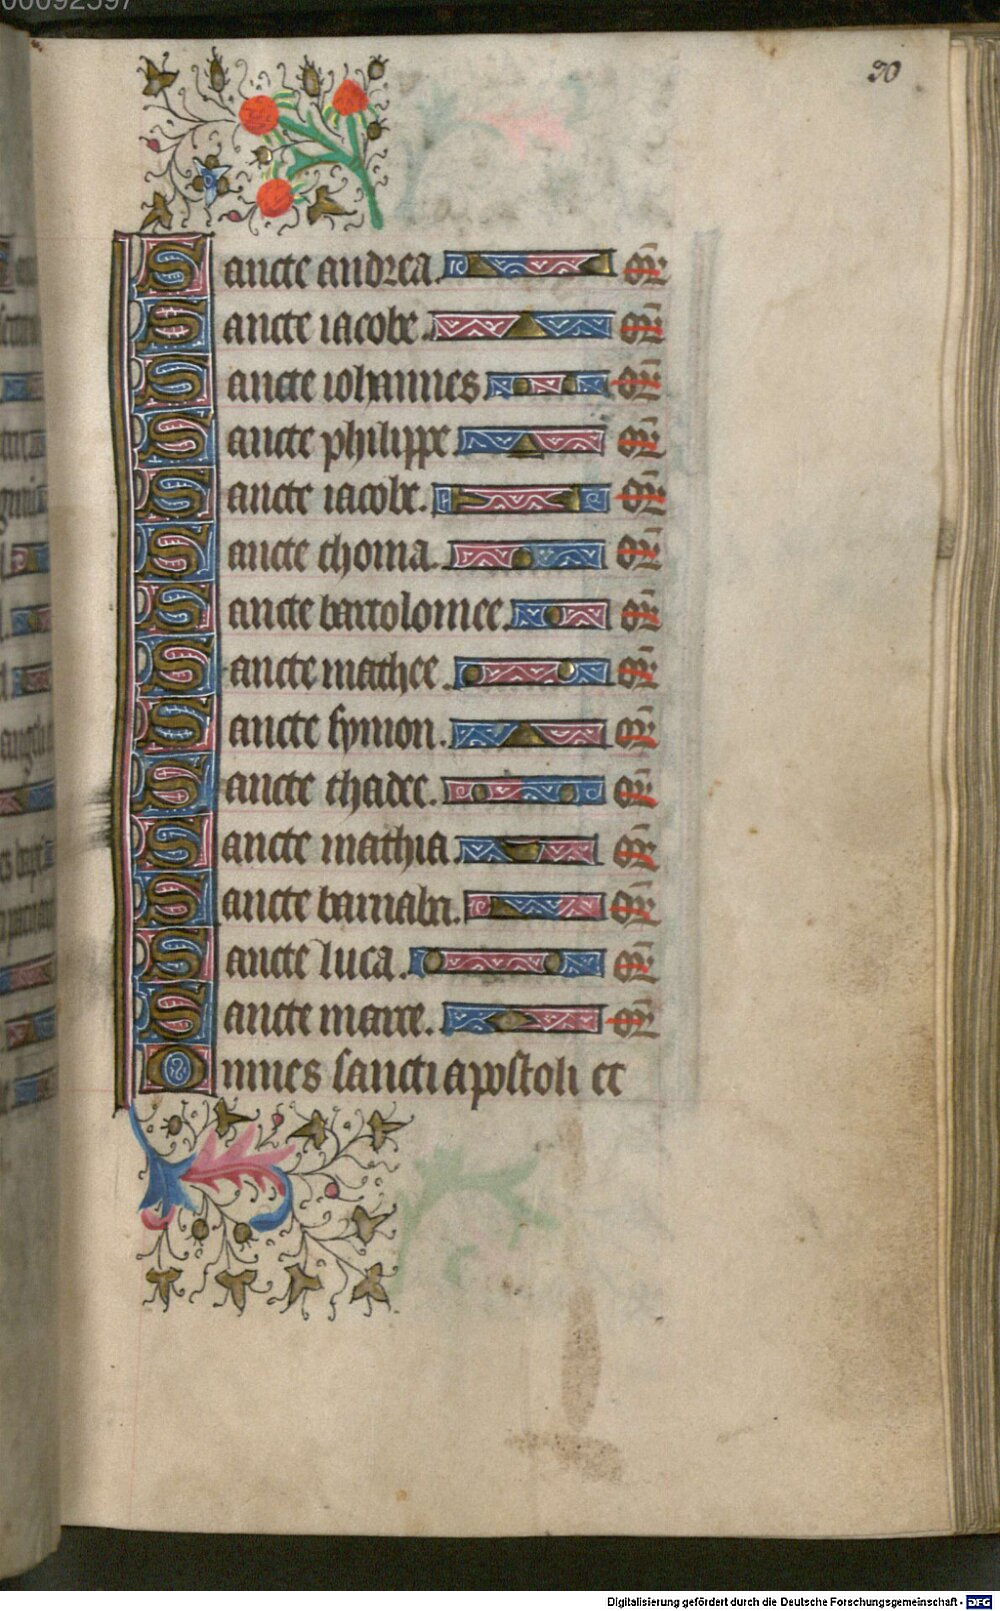 90
Sancte andrea. or
Sancte iacobe. or
Sancte iohannes or
Sancte philippe. or
Sancte iacobe. or
Sancte thoma. or
Sancte bartolomee. or
Sancte mathee. or
Sancte symon. or
Sancte thadee. or
Sancte mathia. or
Sancte barnaba. or
Sancte luca. or
Sancte marce. or
Omnes sancti apostoli et
Digitalisierung gefördert durch die Deutsche Forschungsgemeinschaft - DFG